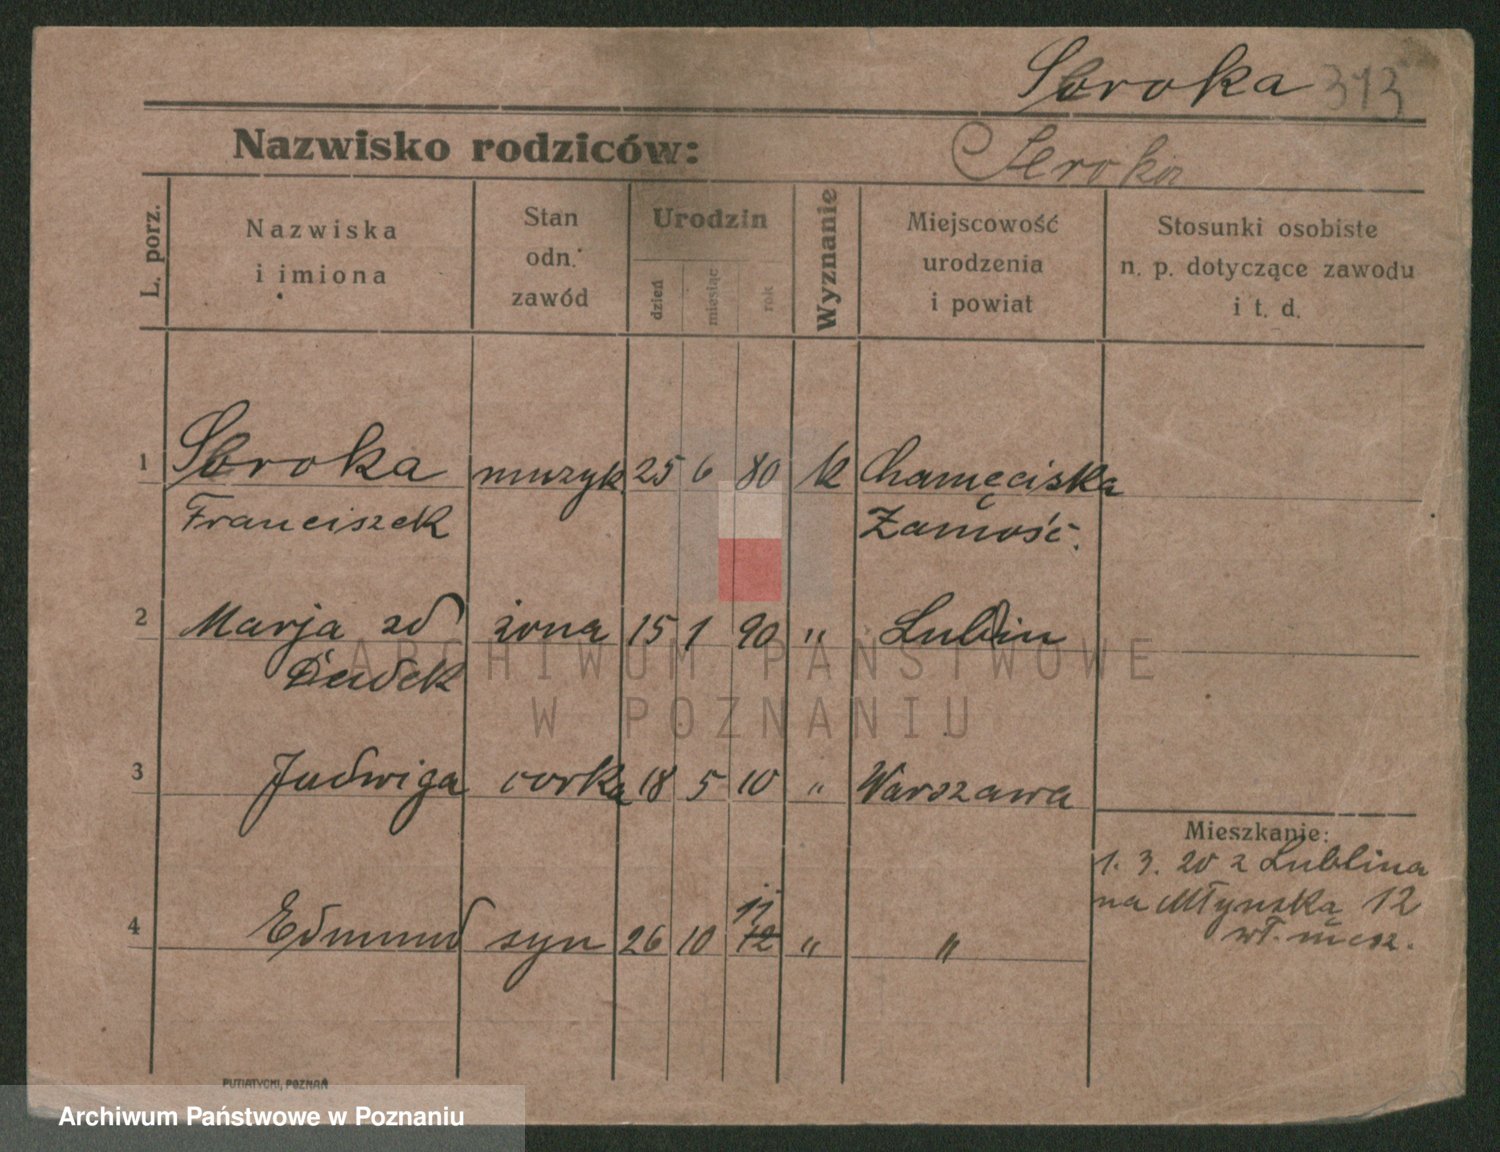 Soroka 373
Nazwisko rodziców:
Seroka
L. porz.
Nazwiska
i imiona
Stan
odn.
zawód
Urodzin
dzień
miesiąc
rok
Wyznanie
Miejscowość
urodzenia
i powiat
Stosunki osobiste
n. p. dotyczące zawodu
i t. d.
1 Soroka muzyk 25 6 80 k Chamęciska
Franciszek Zamość.
2 Marja zd żona 15 1 90 " Lublin
3 Jadwiga corka 18 5 10 " Warszawa
Mieszkanie:
1. 3. 20 z Lublina
na Młynską 12
wł. miesz.
4 Edmund syn 26 10 12 11 " "
PUTIATYCKI, POZNAŃ
ARCHIWUM PAŃSTWOWE
W POZNANIU
Archiwum Państwowe w Poznaniu